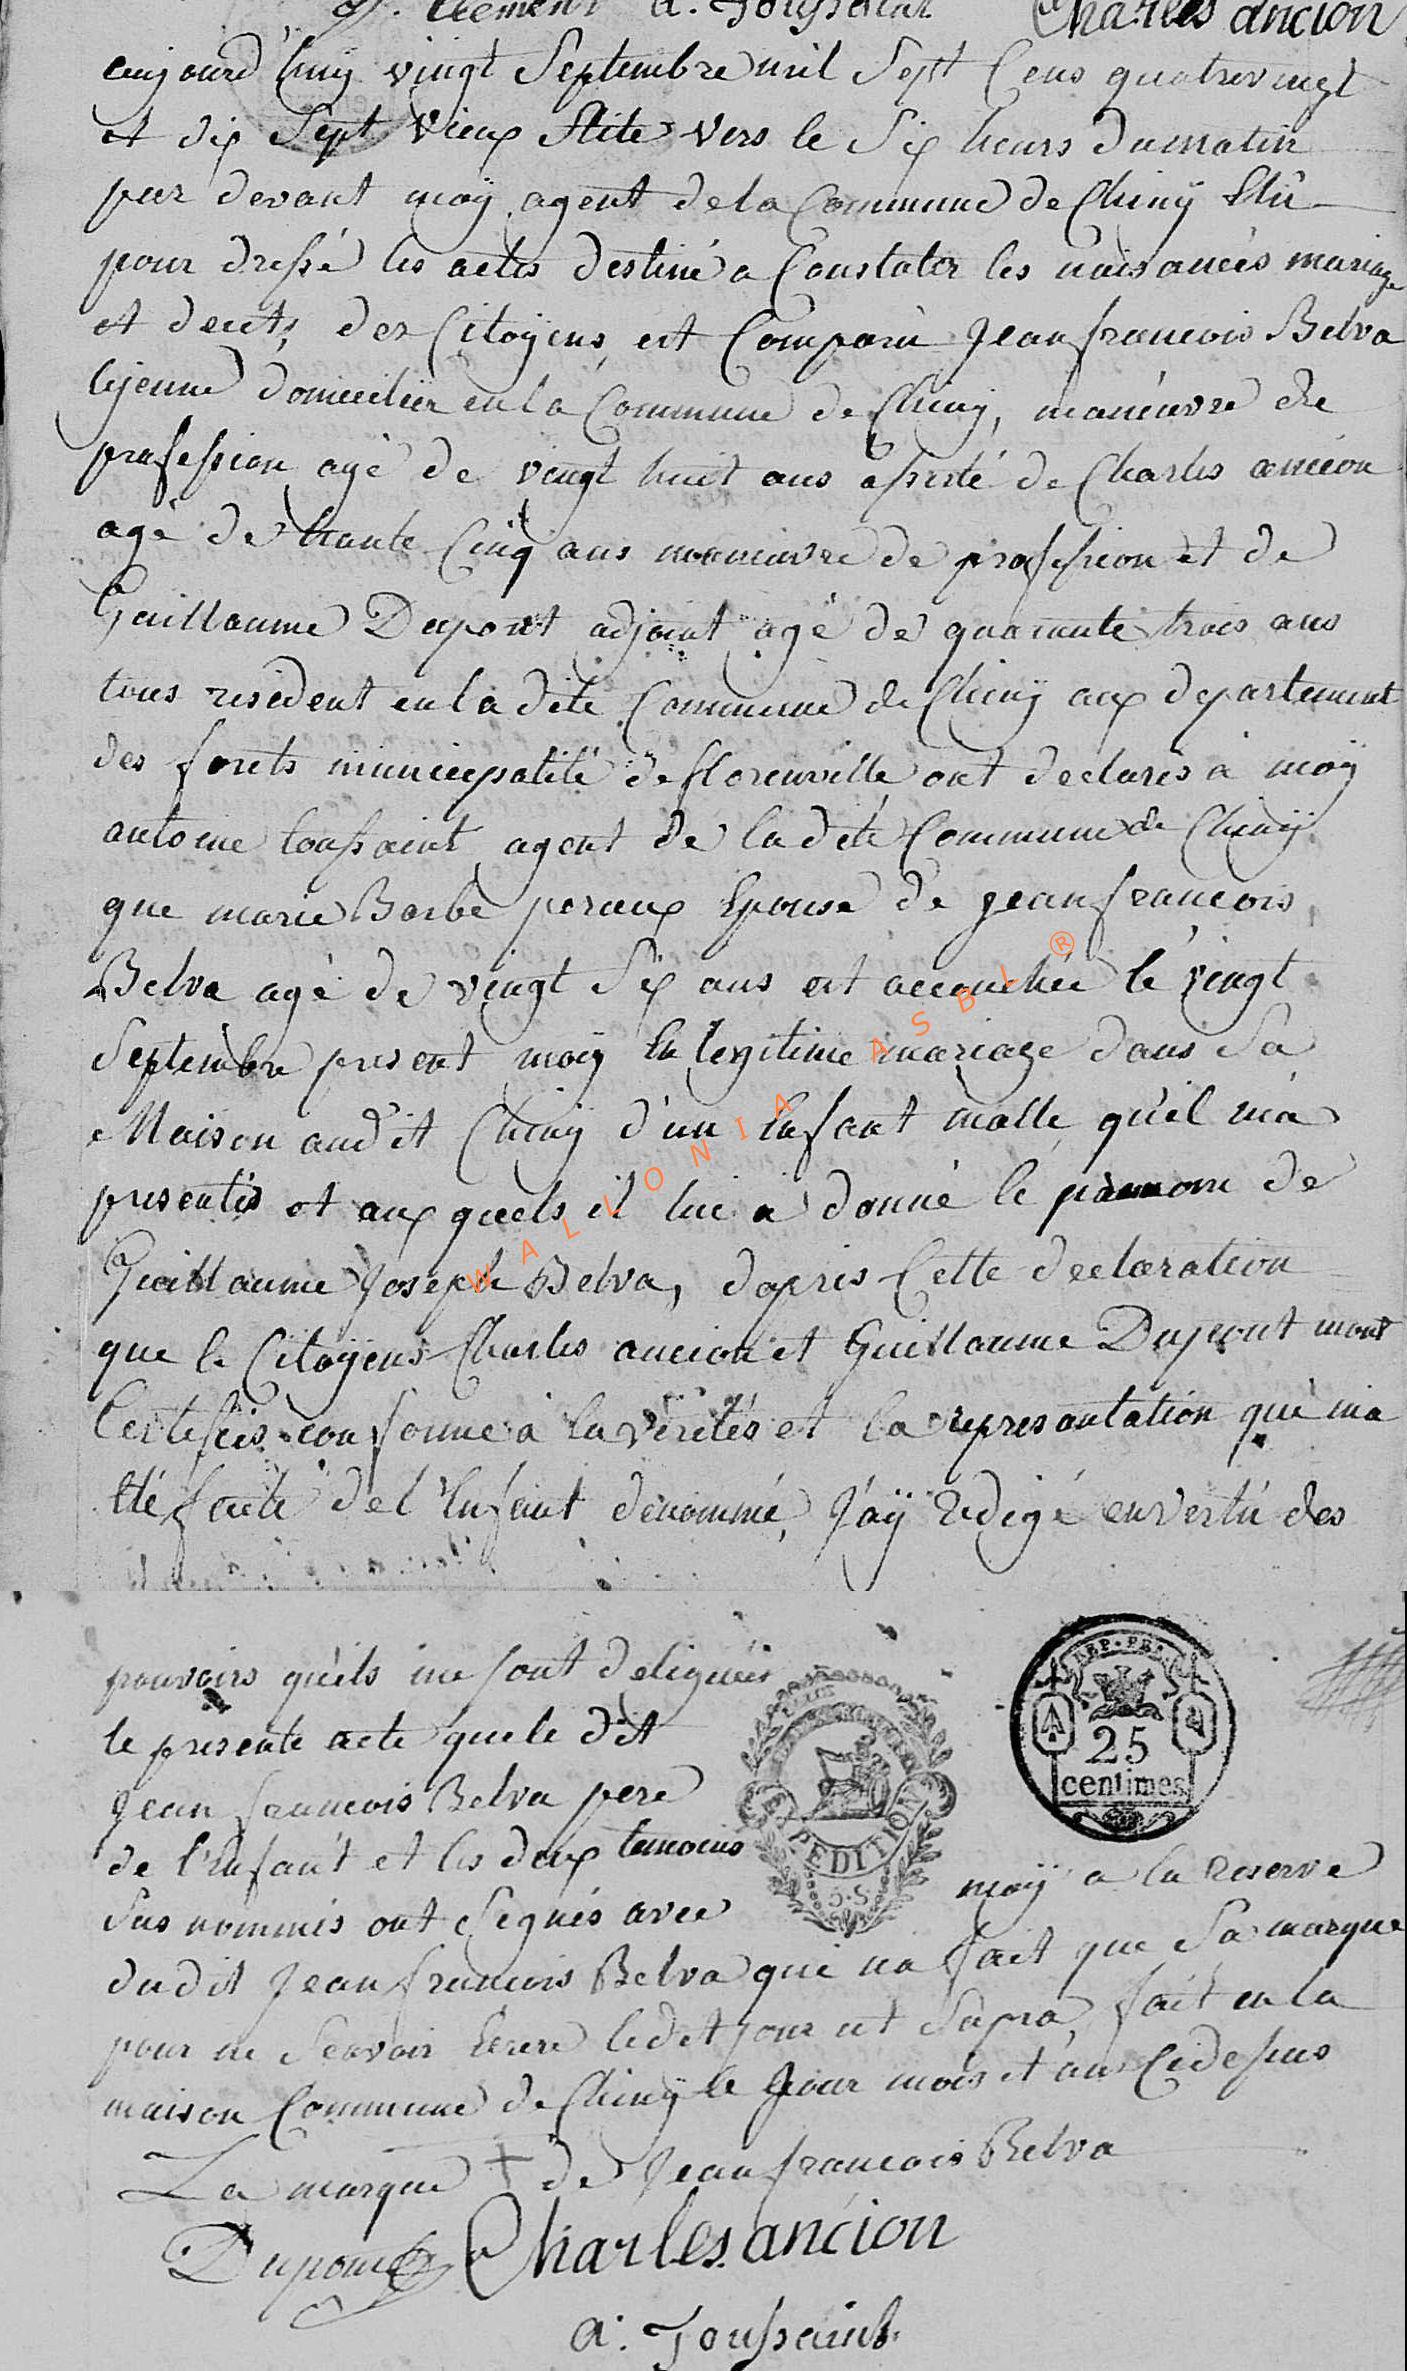 J. Clement a. Toussaint Charles ancion
aujourd'huÿ vingt Septembre mil Sept Cens quatrevingt
et dix Sept vieux Stile vers le Six heurs du matin
par devant moÿ agent de la Commune de Chinÿ Elû
pour dressé les actes destiné a Constater les naisances mariage
et decets, des Citoÿens, est Comparu Jean francois Belva
lejeune domicilier en la Commune de Chinÿ, maneuvre de
profession agé de vingt huit ans assisté de Charles ancion
agé de trante Cinq ans maneuvre de profession et de
Guillaume Dupont adjoint agé de quarante trois ans
tous residént en la dite Commune de Chinÿ aux departement
des forets municipalité de florenville ont declarés a moÿ
antoine toussaint agent de la dite Commune de Chinÿ
que marie Barbe peraux Epouse de jean francois
Belva agé de vingt Six ans est accouchée le vingt
Septembre present moÿ En legitime mariage dans Sa
Maison audit Chinÿ d'un Enfant malle qu'il m'a
presentés et aux quels il lui a donné le prennom de
Guillaume Joseph Belva, dapris Cette declaration
que le Citoÿens Charles ancion et Guillaume Dupont mont
Certifiés conforme à la vérités et la represantation qué ma
Eté faite de l'Enfant dénommé, J'aÿ Redigé en vertû des
pouvoirs qu'ils me sont deliguées
le présente acte que le dit
Jean francois Belva pere
de l'Enfant et les deux temoins
Sus nommés ont Signés avec
moÿ a la Reserve
dudit Jean francois Belva qui na fait que Sa marque
pour ne Scavoir Ecrire ledit jour ut Supra, fait en la
maison Commune de Chinÿ le Jour mois et an Cidessus
La marque + de Jean francois Belva
Dupont Charles ancion
a. Toussaint
REP. FRA.
25
centimes
EXPEDITION
WALLONIA ASBL ®